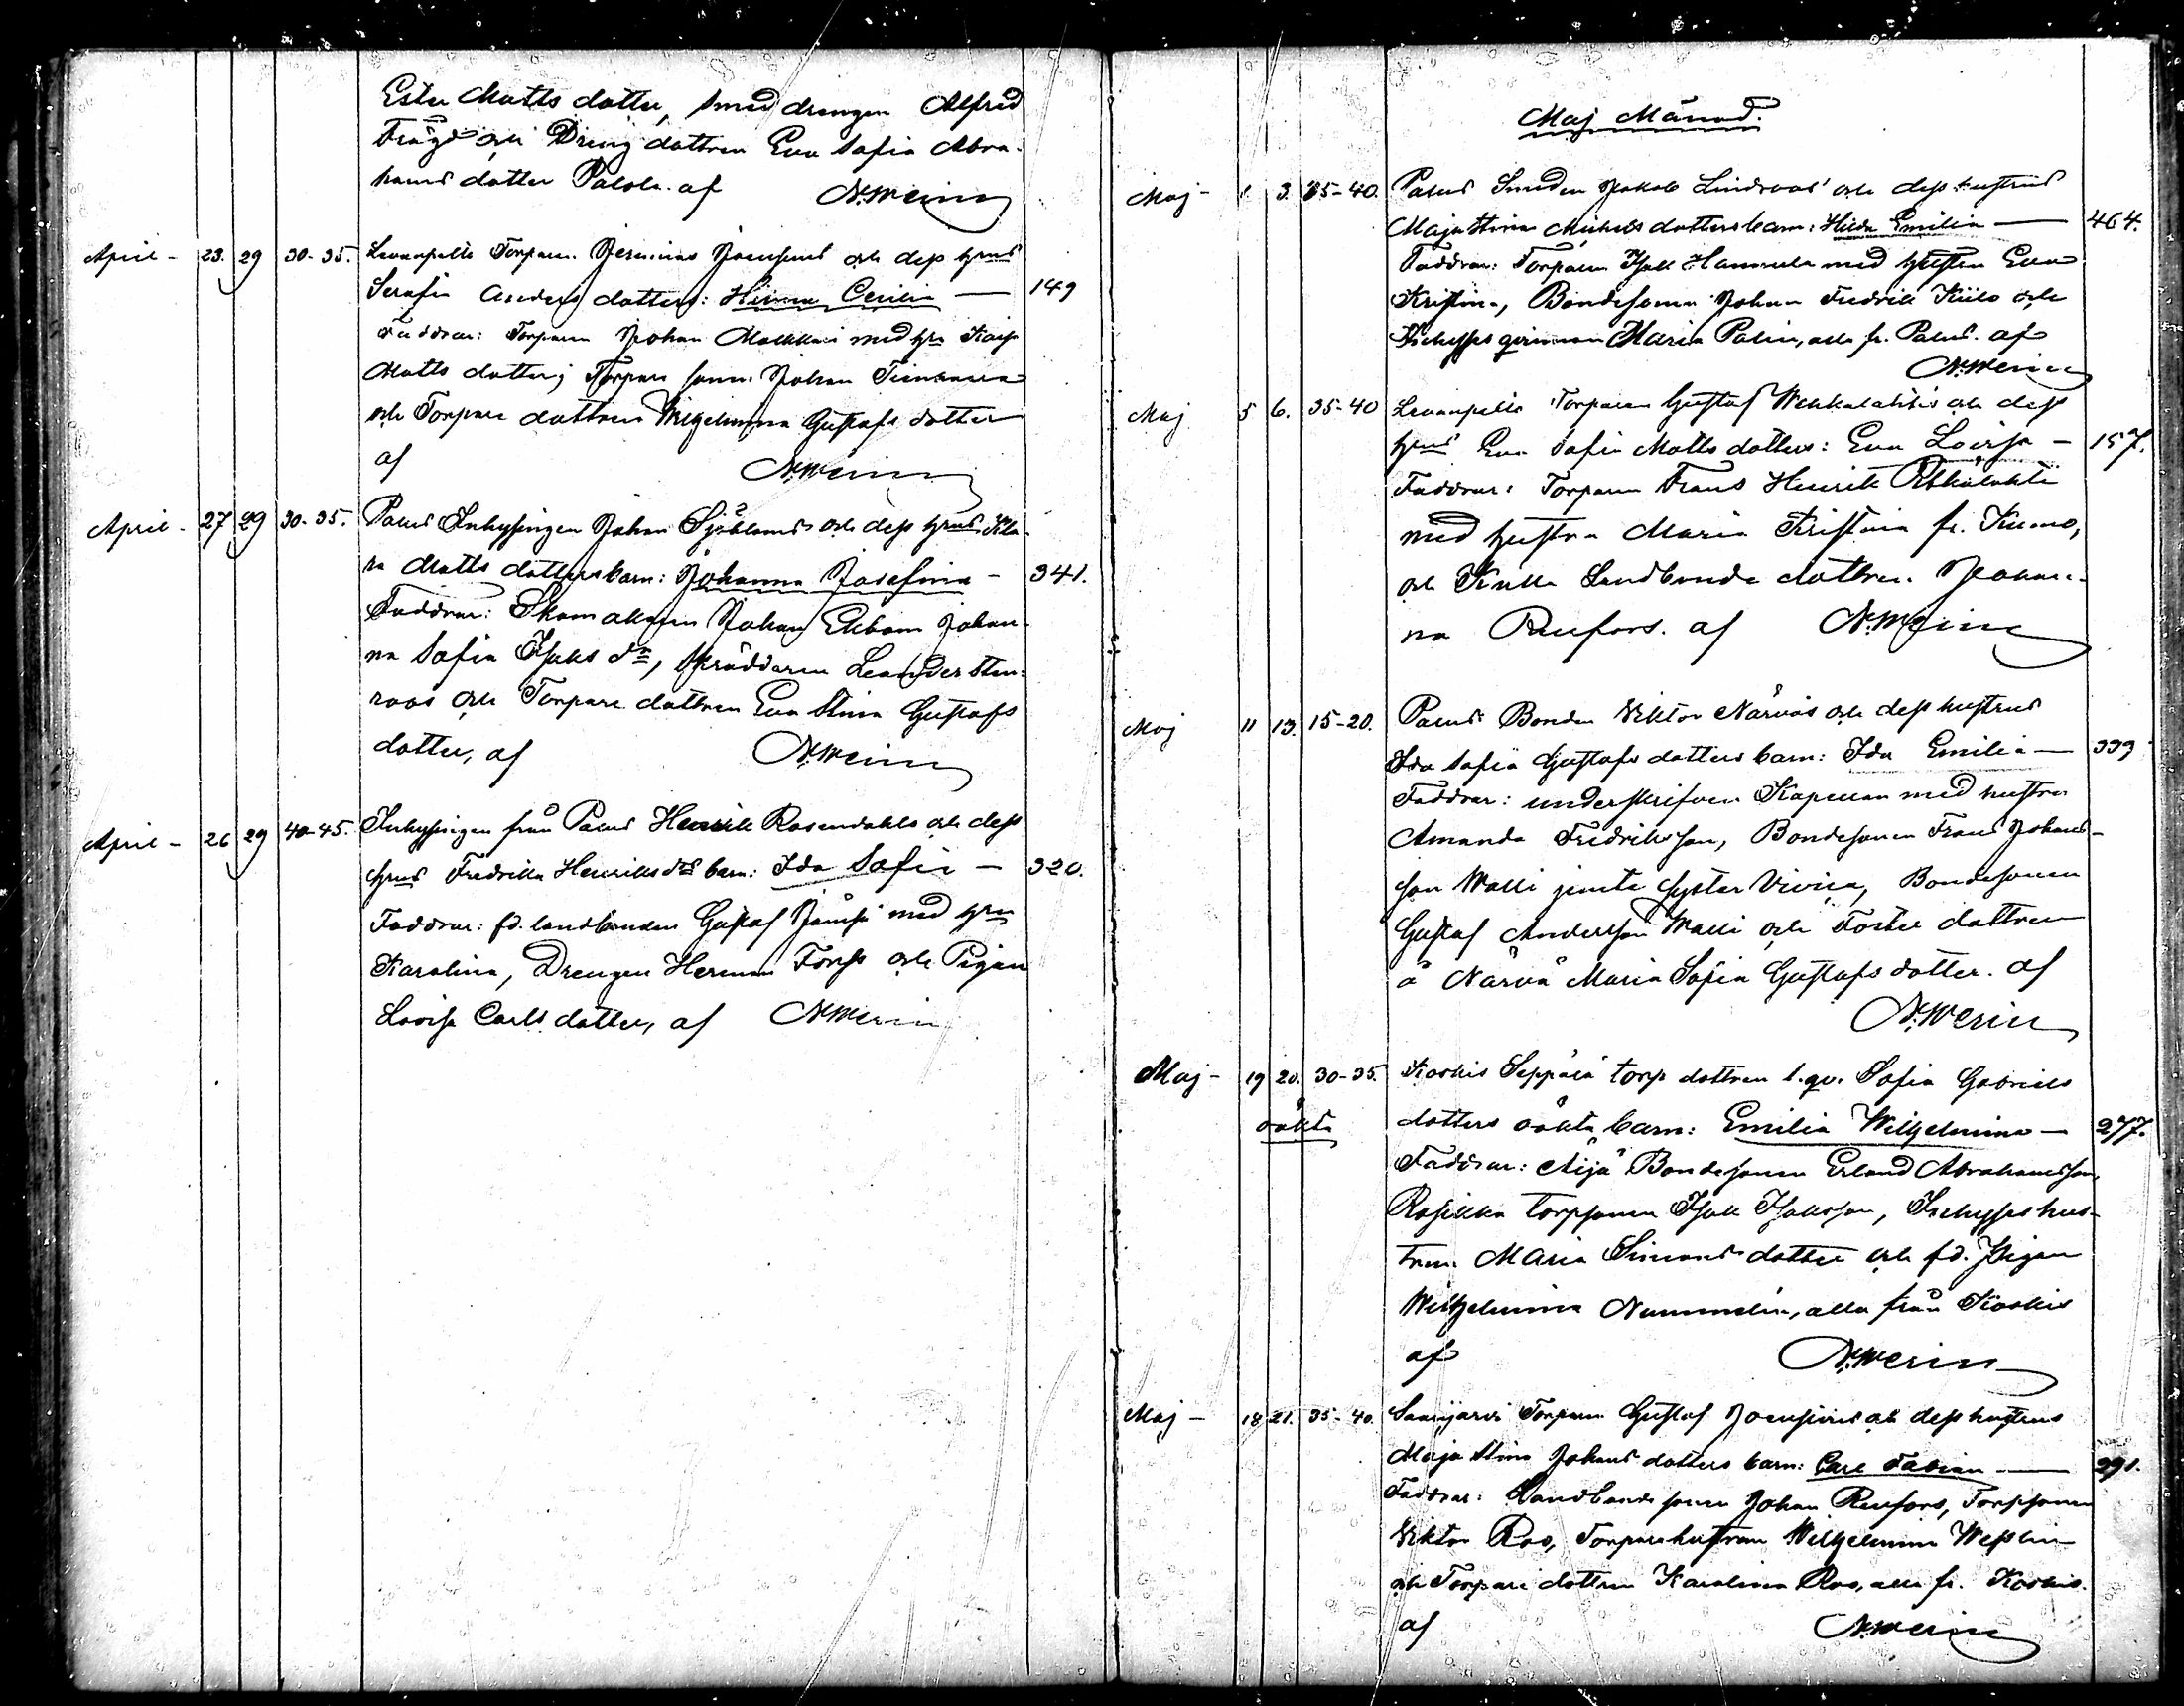 Ester Matts dotter, smed drengen Alfred
Frägd och Dreng dottren Eva Sofia Abra-
hams dotter Palola. af N. Merin
April - 23. 29 30-35. Levanpelto Torparen Jeremias Joensuus och dess hrus
Serafia Anders dotters: Hilma Cecilia — 149
Faddrar: Torparen Johan Makkari med hru Kaisa
Matts dotter; Torpare sonen Johan
och Torpare dottren Wilhelmina Gustafs dotter
af N. Merin
April - 27 29 30-35. Palus Inhysingen Johan Sjöbloms och dess hrus Kla-
ra Matts dotters barn: Johanna Josefina - 341.
Faddrar: Skomakaren Johan Ekbom Johan-
na Sofia Isaks dr, Skräddaren Leander Sten-
roos och Torpare dottren Eva Stina Gustafs
dotter, af N. Merin
April - 26 29 40-45. Inhysingen från Palus Henrik Rosendahls och dess
hrus Fredrika Henriks drs barn: Ida Sofia — 320.
Faddrar: fd. landbonden Gustaf Jämsä med hru
Karolina, Drengen Herman Forss och Pigan
Lovisa Carls dotter, af N. Merin
Maj Månad.
Maj - 1. 3. 35-40. Palus Smeden Jakob Lindroos' och dess hustrus
Maja Stina Mickels dotters barn: Hilda Emilia — 464.
Faddrar: Torparen Isak Hannula med hustru Eva
Kristina, Bondesonen Johan Fredrik Kiilo och
Inhyses qvinnan Maria Palin, alla fr. Palus. af
N. Merin
Maj 5 6. 35-40 Levanpelto Torparen Gustaf Wehkalahtis och dess
hrus Eva Sofia Matts dotters: Eva Lovisa — 157.
Faddrar: Torparen Frans Henrik
med hustru Maria Kristina fr. Kumo,
och Kulla Landbonde dottren Johan-
na Renfors. af N. Merin
Maj 11 13. 15-20. Palus Bonden Viktor Närväs och dess hustrus
Ida Sofia Gustafs dotters barn: Ida Emilia — 339
Faddrar: underskrifven Kapellan med hustru
Amanda Fredriksson, Bondesonen Frans Johans-
son Walli jemte syster Vivica, Bondesonen
Gustaf Andersson Walli och Foster dottren
å Närvä Maria Sofia Gustafs dotter. af
N. Merin
Maj - 19 20. 30-35. Koskis Seppälä torp dottren l. qv. Sofia Gabriels
oäkta dotters oäkta barn: Emilia Wilhelmina — 277.
Faddrar: Äijä Bondesonen Erland Abrahamsson,
Rasikka torpsonen Isak Isaksson, Inhyses hus-
trun Maria Simons dotter och fd. Pigan
Wilhelmina Nummelin, alla från Koskis
af N. Merin
Maj - 18 21. 35-40. Saarijarvi Torparen Gustaf Joensuus och dess hustrus
Maja Stina Johans dotters barn: Carl Fabian — 291.
Faddrar: Landbonde sonen Johan Renfors, Torpsonen
Viktor Ros, Torpare hustrun Wilhelmina Wesslin
och Torpare dottren Karolina Ros, alla fr. Koskis.
af N. Merin